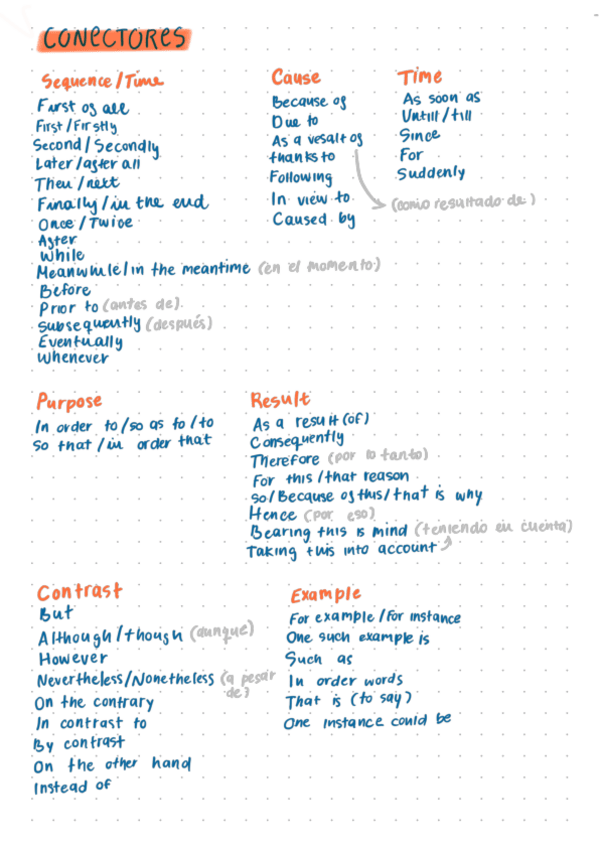 CONECTORES
Sequence/Time
First of all
First/Firstly
Second/Secondly
Later/after all
Then/next
Finally/in the end
Once/Twice
After
While
Meanwhile/in the meantime (en el momento)
Before
Prior to (antes de)
Subsequently (después)
Eventually
Whenever
Cause
Because of
Due to
As a vesalt of
thanks to
Following
In view to
Caused by
(como resultado de)
Time
As soon as
Untill/till
Since
For
Suddenly
Purpose
In order to/so as to/to
So that/in order that
Result
As a result (of)
Consequently
Therefore (por lo tanto)
For this/that reason
So/Because of this/that is why
Hence (por eso)
Bearing this is mind (teniendo en cuenta)
Taking this into account
Contrast
But
Although/though (aunque)
However
Nevertheless/Nonetheless (a pesar
de)
On the contrary
In contrast to
By contrast
On the other hand
Instead of
Example
For example/For instance
One such example is
Such as
In order words
That is (to say)
One instance could be